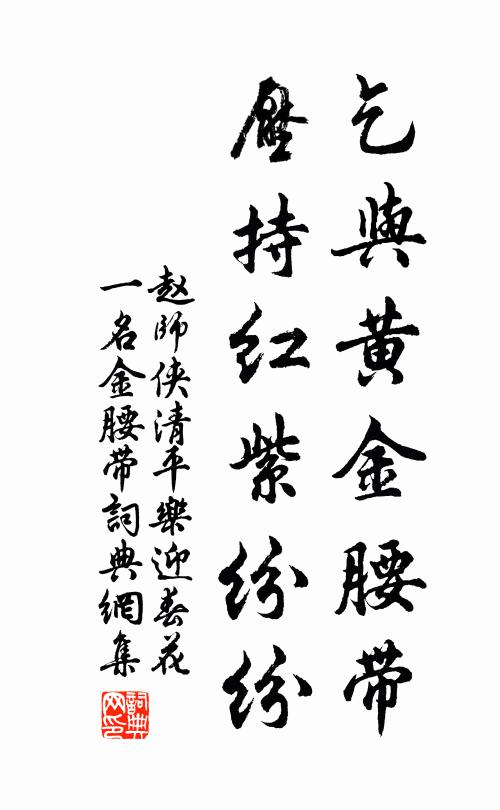 乞與黄金腰帶
壓持红紫紛紛
赵師侠清平樂迎春花
一名金腰帶詞典網集
詞典网印